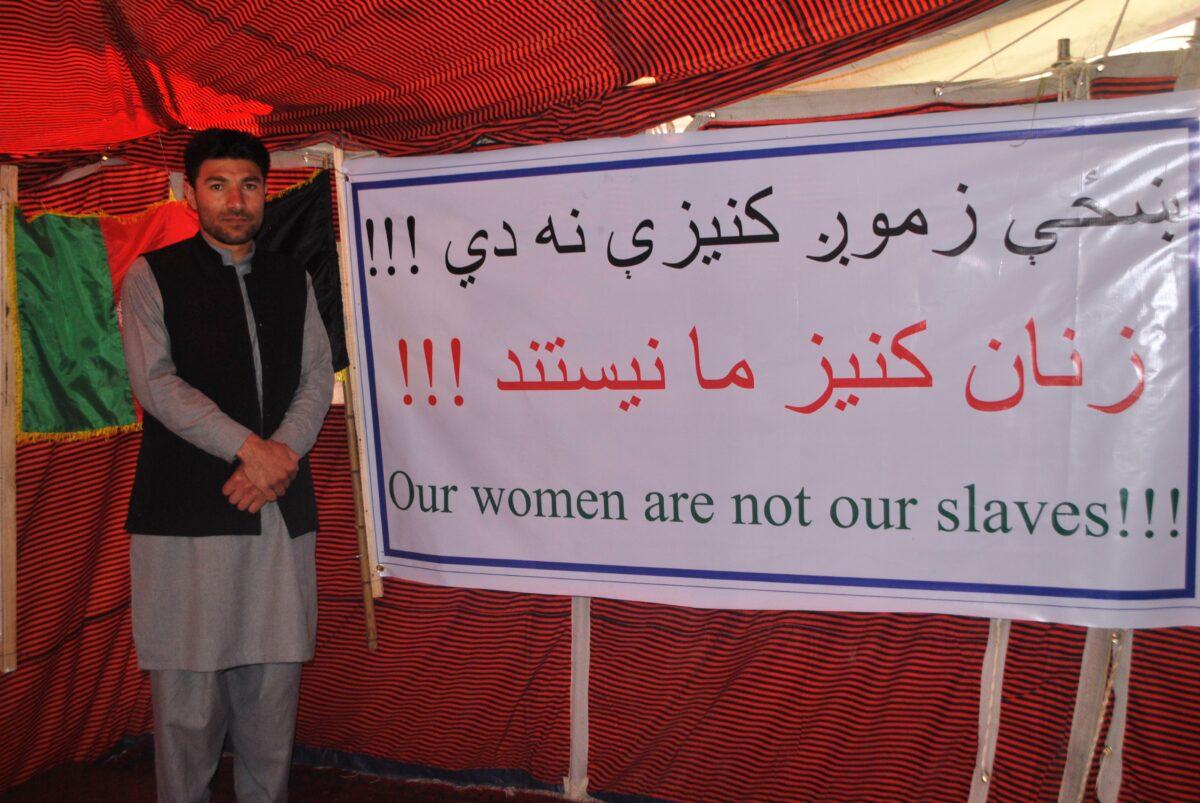 ښځې زموږ کنیزې نه دي !!!
زنان کنیز ما نیستند !!!
Our women are not our slaves!!!